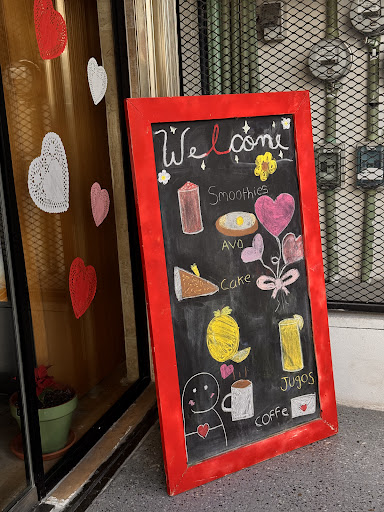 Welcome
Smoothies
AVO
Cake
JUGOS
COFFE